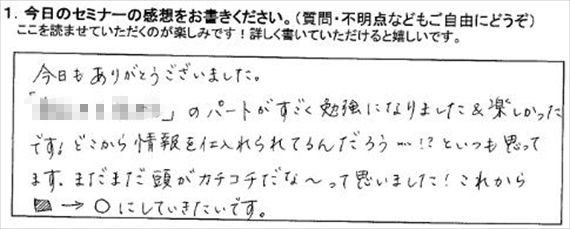 1. 今日のセミナーの感想をお書きください。（質問・不明点などもご自由にどうぞ）
ここを読ませていただくのが楽しみです！詳しく書いていただけると嬉しいです。
今日もありがとうございました。
「 」のパートがすごく勉強になりました＆楽しかった
です！どこから情報を仕入れられてるんだろう…!?といつも思って
ます。まだまだ頭がカチコチだな〜って思いました！これから
→ ○にしていきたいです。